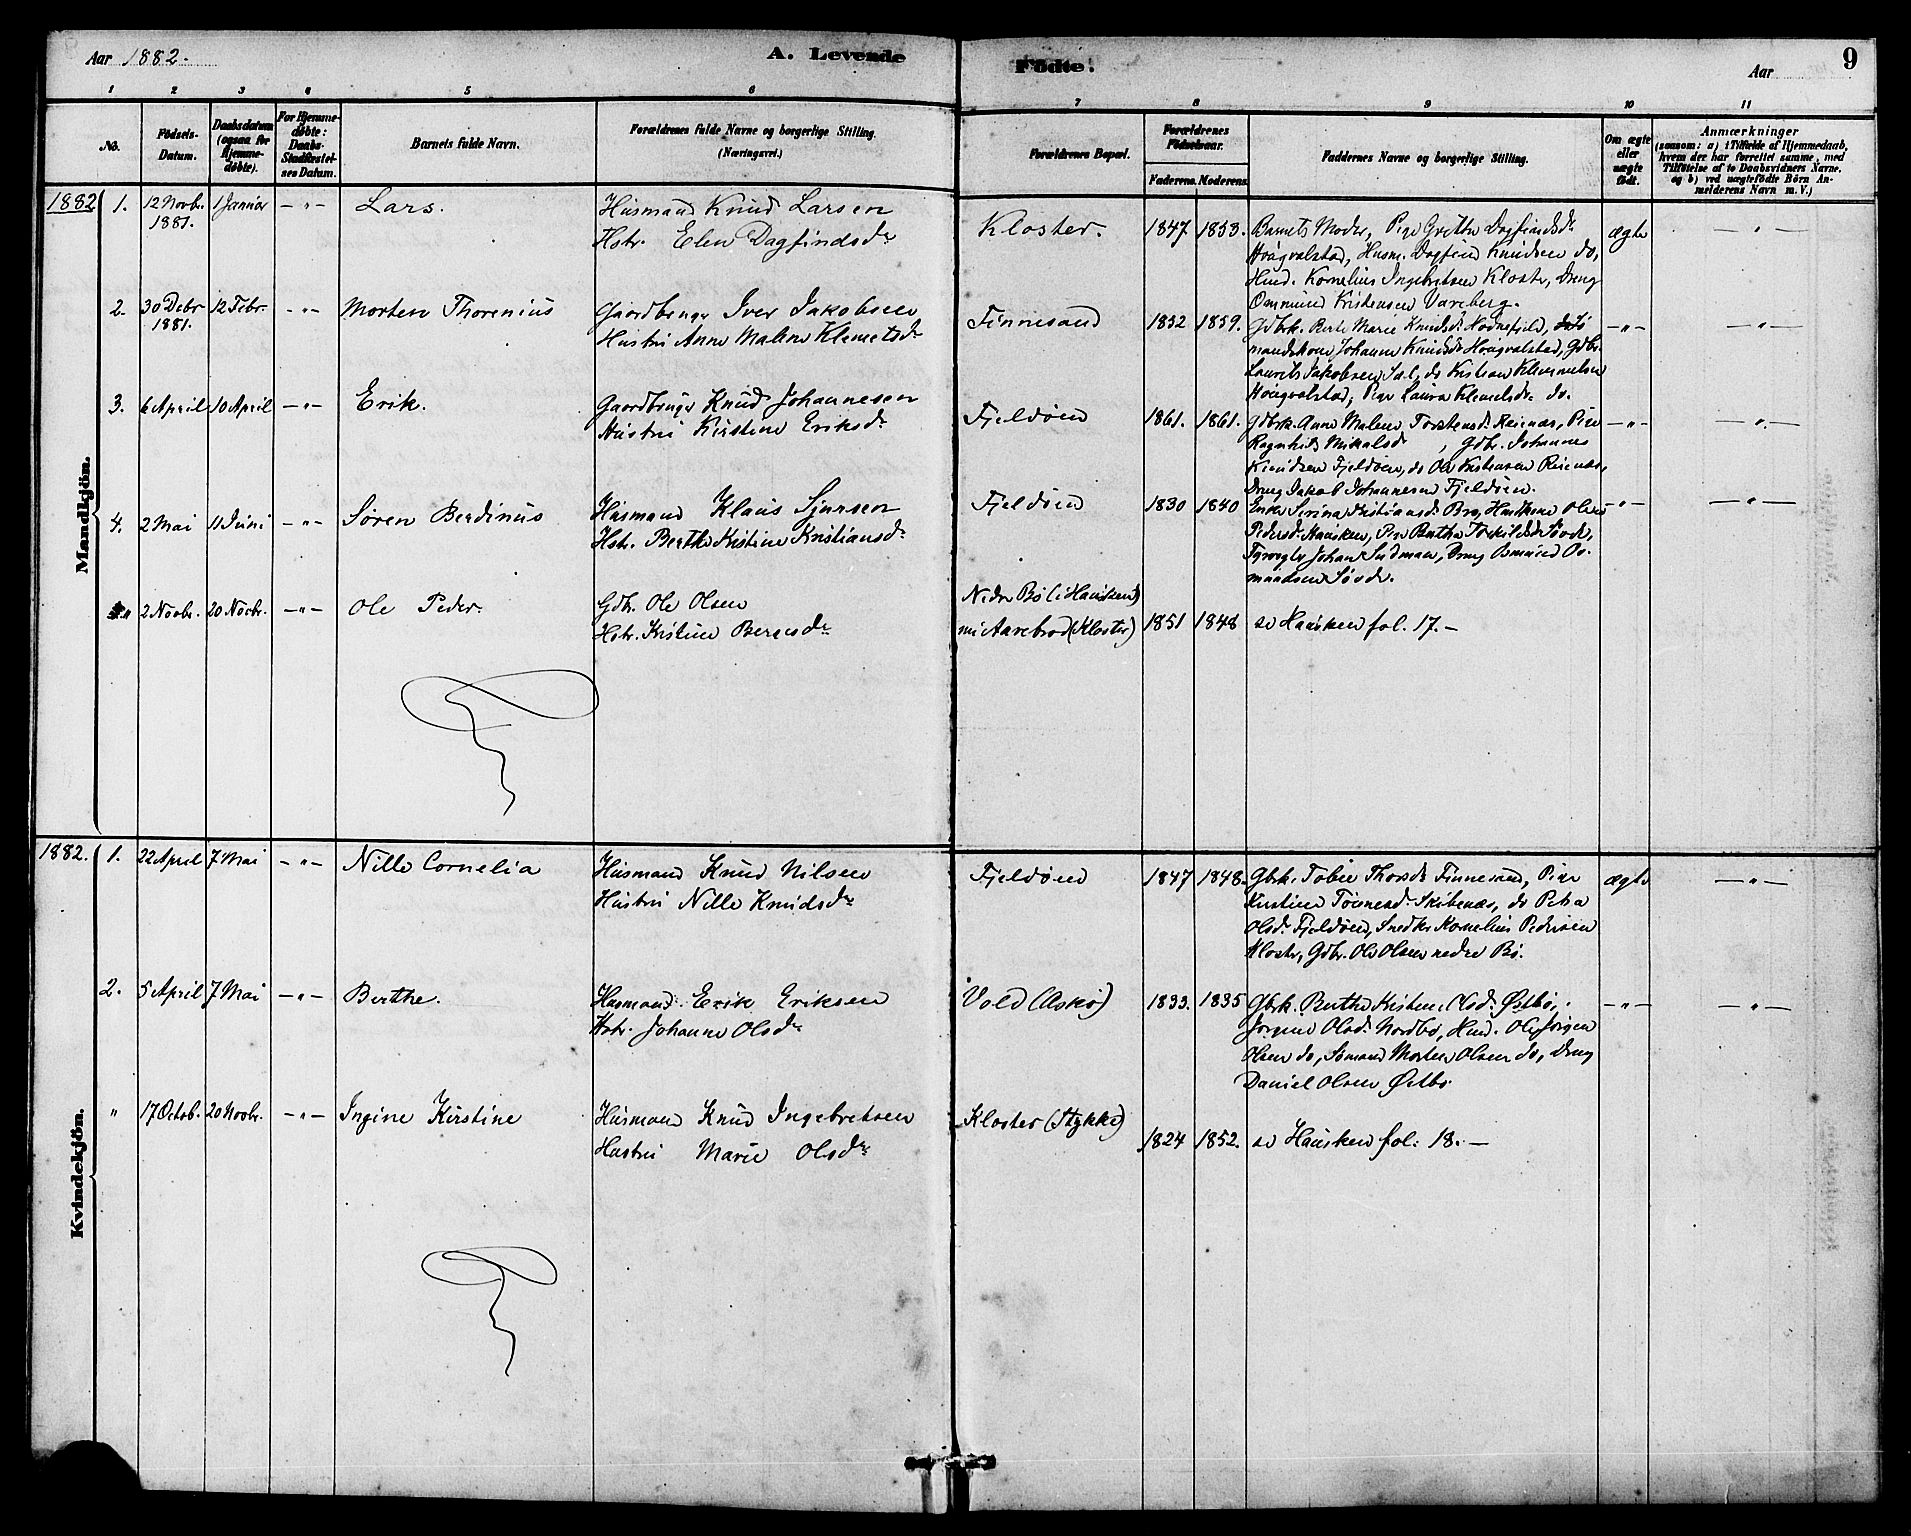 Aar 1882.
A. Levende
Fødte.
Aar
9
1 2 3 4 5 6 7 8 9 10 11
No.
Fødsels-Datum.
Daabsdatum (ogsaa for Hjemmedøbte).
For Hjemmedøbte: Daabs-Stadfæstelses Datum.
Barnets fulde Navn.
Forældrenes fulde Navne og borgerlige Stilling.
(Næringsvei.)
Forældrenes Bopæl.
Forældrenes Fødselsaar.
Faderens. Moderens.
Faddernes Navne og borgerlige Stilling.
Om ægte eller uægte født.
Anmærkninger
(saasom: a) i Tilfælde af Hjemmedaab,
hvem der har forrettet samme, med
Tilføielse af to Daabsvidners Navne.
og b) ved uægtefødte Børn An-
melderens Navn m. V.)
Mandkjön.
1882 1. 12 Novbr. 1881. 1 Januar -"- Lars.
Husmand Knud Larsen
Hstr. Elen Dagfindsdr
Kloster. 1847. 1853.
Barnets Moder, Pige Grethe Dagfindsdr
Haugvalstad, Husm. Dagfind Knudsen do,
Husd. Kornelius Ingebretsen Kloster, Dreng
Osmund Kristensen Vareberg.
ægte -"-
2. 30 Debr 1881. 12 Febr. -"- Morten Thorenius
Gaardbruger Iver Jakobsen
Hustru Anne Malene Klemetsdr
Finnesand 1832 1859.
Gdbrk. Berte Marie Knudsdr Nodnefjeld,
mandskone Johanne Knudsdr Haugvalstad, Gdbr.
Laurits Jakobsen Sæl, do Kristian
Haugvalstad, Pige Laura Klemetsdr do.
-"- -"-
3. 6 April 10 April -"- Erik.
Gaardbruger Knud Johannesen
Hustru Kirstine Eriksdr
Fjeldøen 1861. 1861.
Gdbrk. Anne Malene Torstensdr Reienæs, Pige
Ragnhild Mikalsdr , Gdbr. Johannes
Knudsen Fjeldøen, do Ole Kristensen
Dreng Jakob Johannesen Fjeldøen.
-"- -"-
4. 2 Mai 11 Juni -"- Søren Berdinus
Husmand Klaus Sjursen
Hstr. Berthe Kistine Kristiansdr
Fjeldøen 1830 1840
Enke Serina Kristiansdr Bro, Olene
Pedersdr Hausken, Pige Berthe Torkildsdr Søvde,
Johan Sudman, Dreng Osmund Os-
mundsen Søvde.
-"- -"-
" 2 Novbr. 20 Novbr. -"- Ole Peder.
Gdbr. Ole Olsen
Hstr. Kristine Bergesdr
Nedre Bø (i Hausken)
mi Aarebrod (Kloster) 1851 1848 se Hausken fol. 17.-
Kvindekjön.
1882. 1. 22 April 7 Mai -"- Nille Cornelia
Husmand Knud Nilsen
Hustru Nille Knudsdr
Fjeldøen 1847 1848.
Gbrk. Tobie Thorsdr Finnesand, Pige
Kirstine Tønnesdr Skibenæs, do Petra
Olsdr Fjeldøen, Snedker Kornelius Pedersen
Kloster, Gdbr. Ole Olsen nedre Bø.
ægte -"-
2. 5 April 7 Mai -"- Berthe.
Husmand Erik Eriksen
Hstr. Johanne Olsdr
Vold (Askø) 1833. 1835
Gbrk. Berthe Kistine Olsdr Østbø,
Jørgine Olsdr Nordbø, Husd. Ole Jørgen
Olsen do, Sømand Morten Olsen do, Dreng
Daniel Olsen Østbø.
-"- -"-
" 17 Octob. 20 Novbr. -"- Ingine Kirstine
Husmand Knud Ingebretsen
Hustru Marie Olsdr
Kloster (Stykke) 1824 1852. se Hausken fol. 18.-